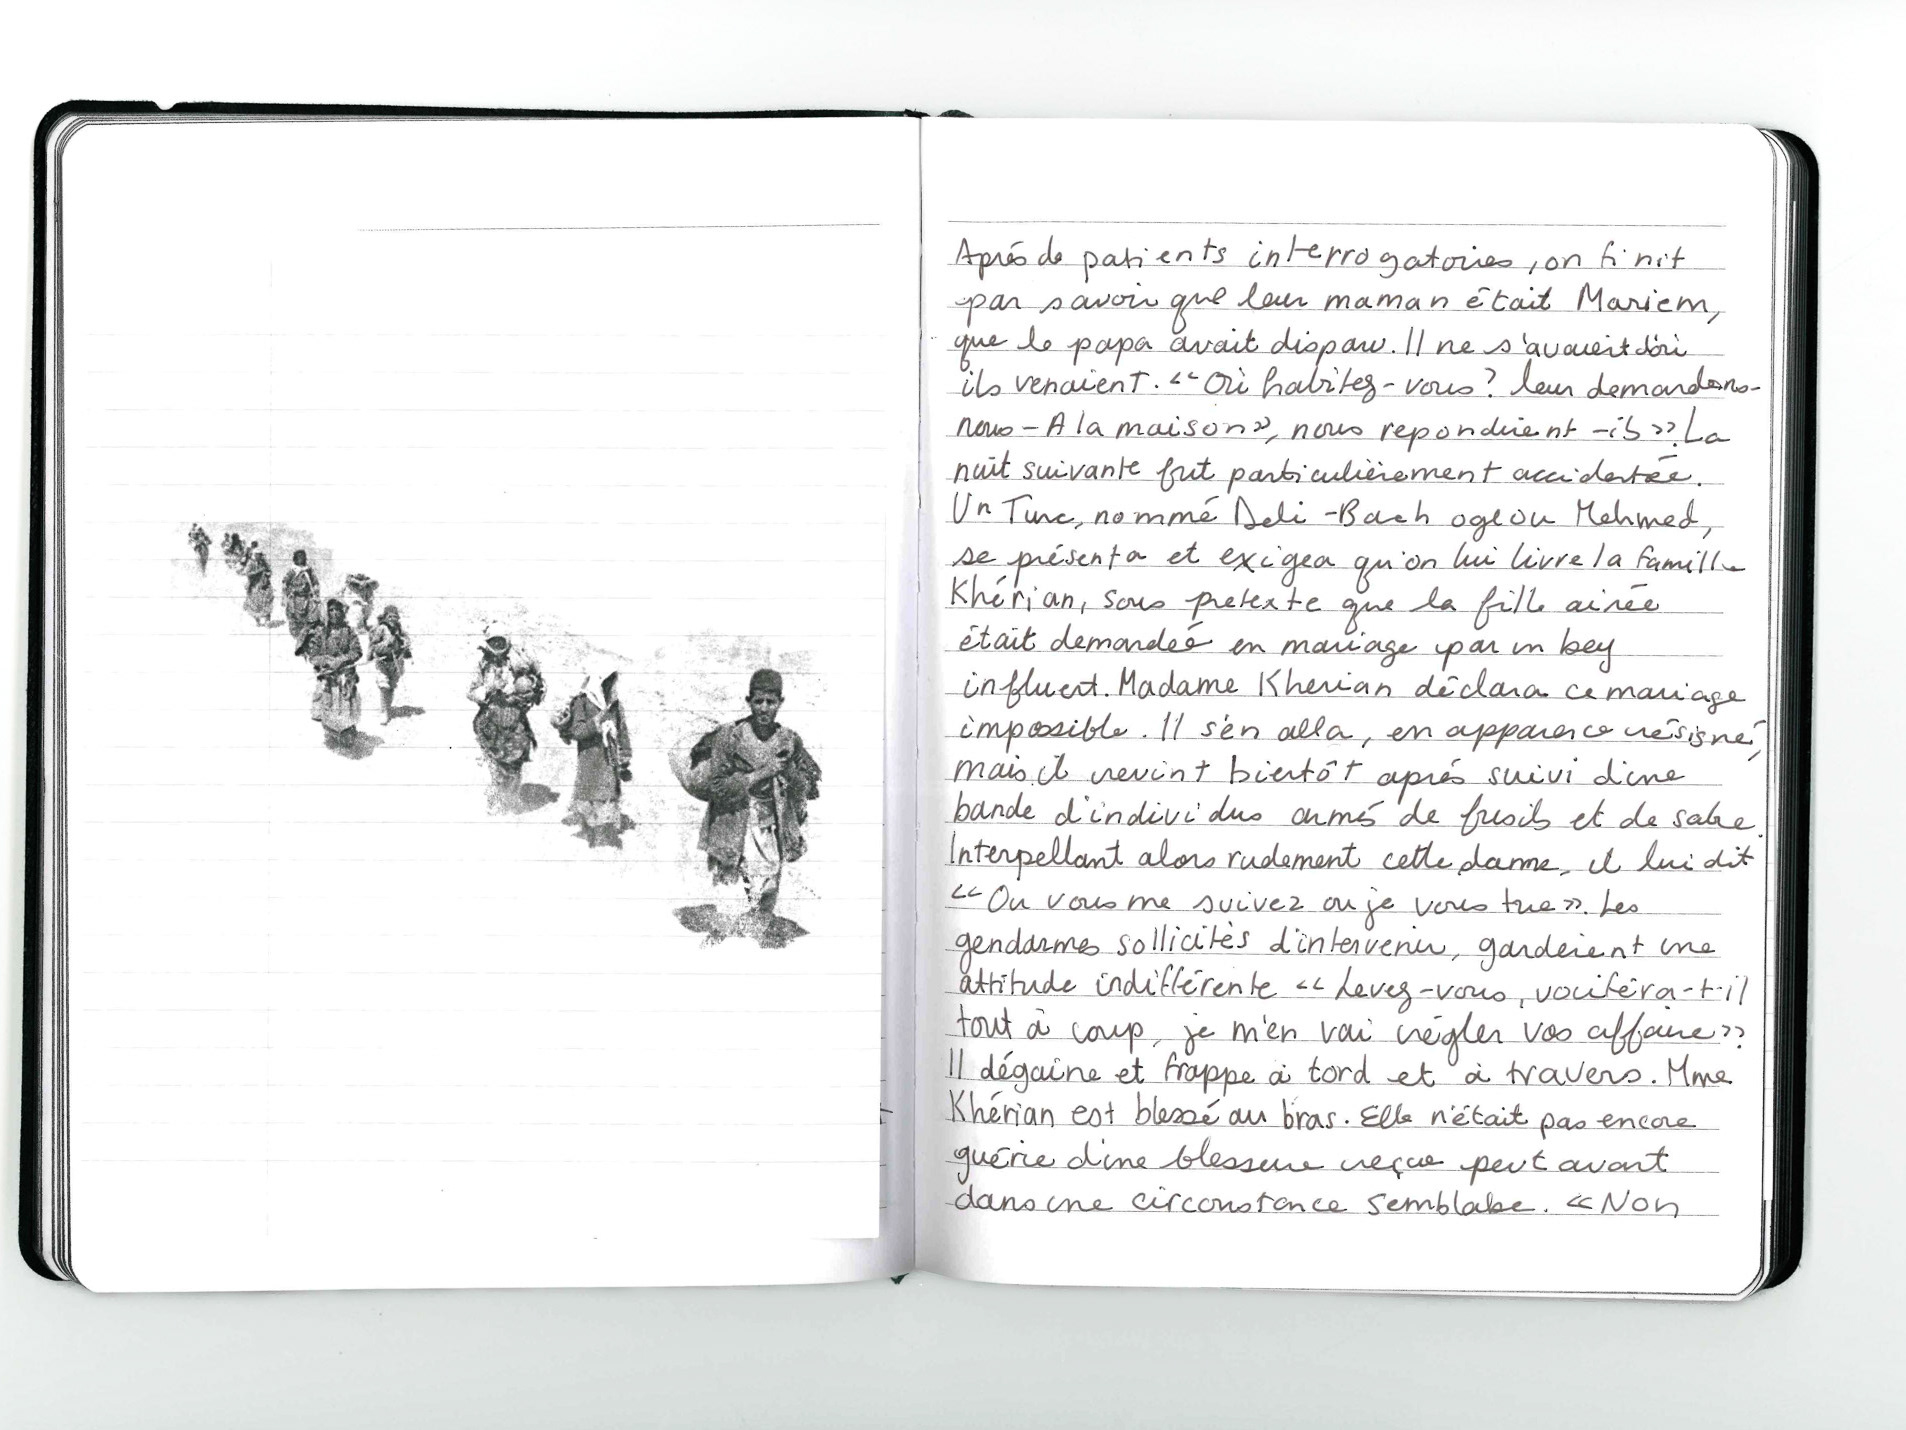 Aprés de patients interrogatoires, on finit
par savoir que leur maman était Mariem,
que le papa avait disparu. Il ne s'avaient d'où
ils venaient. "Où habitez-vous? leur demandons-
nous - A la maison», nous repondirent -ils». La
nuit suivante fut particulièrement accidentée.
Un Turc, nommé Deli-Bach ogeou Mehmed,
se présenta et exigea qu'on lui livre la famille
Khérian, sous pretexte que la fille ainée
était demandeé en mariage par un bey
influent. Madame Kherian déclara ce mariage
impossible. Il s'en alla, en apparence résigné,
mais il revint bientôt aprés suivi d'une
bande d'individus armés de fusils et de sabre.
Interpellant alors rudement cette dame, il lui dit
"Ou vous me suivez ou je vous tue». Les
gendarmes sollicités d'intervenir, gardèrent une
attitude indifférente "Levez-vous, vociféra-t-il
tout à coup, je m'en vai régler vos affaire»
Il dégaine et frappe à tord et à travers. Mme
Khérian est blessé au bras. Elle n'était pas encore
guérie d'une blessure reçue peut avant
dans une circonstance semblabe. «Non